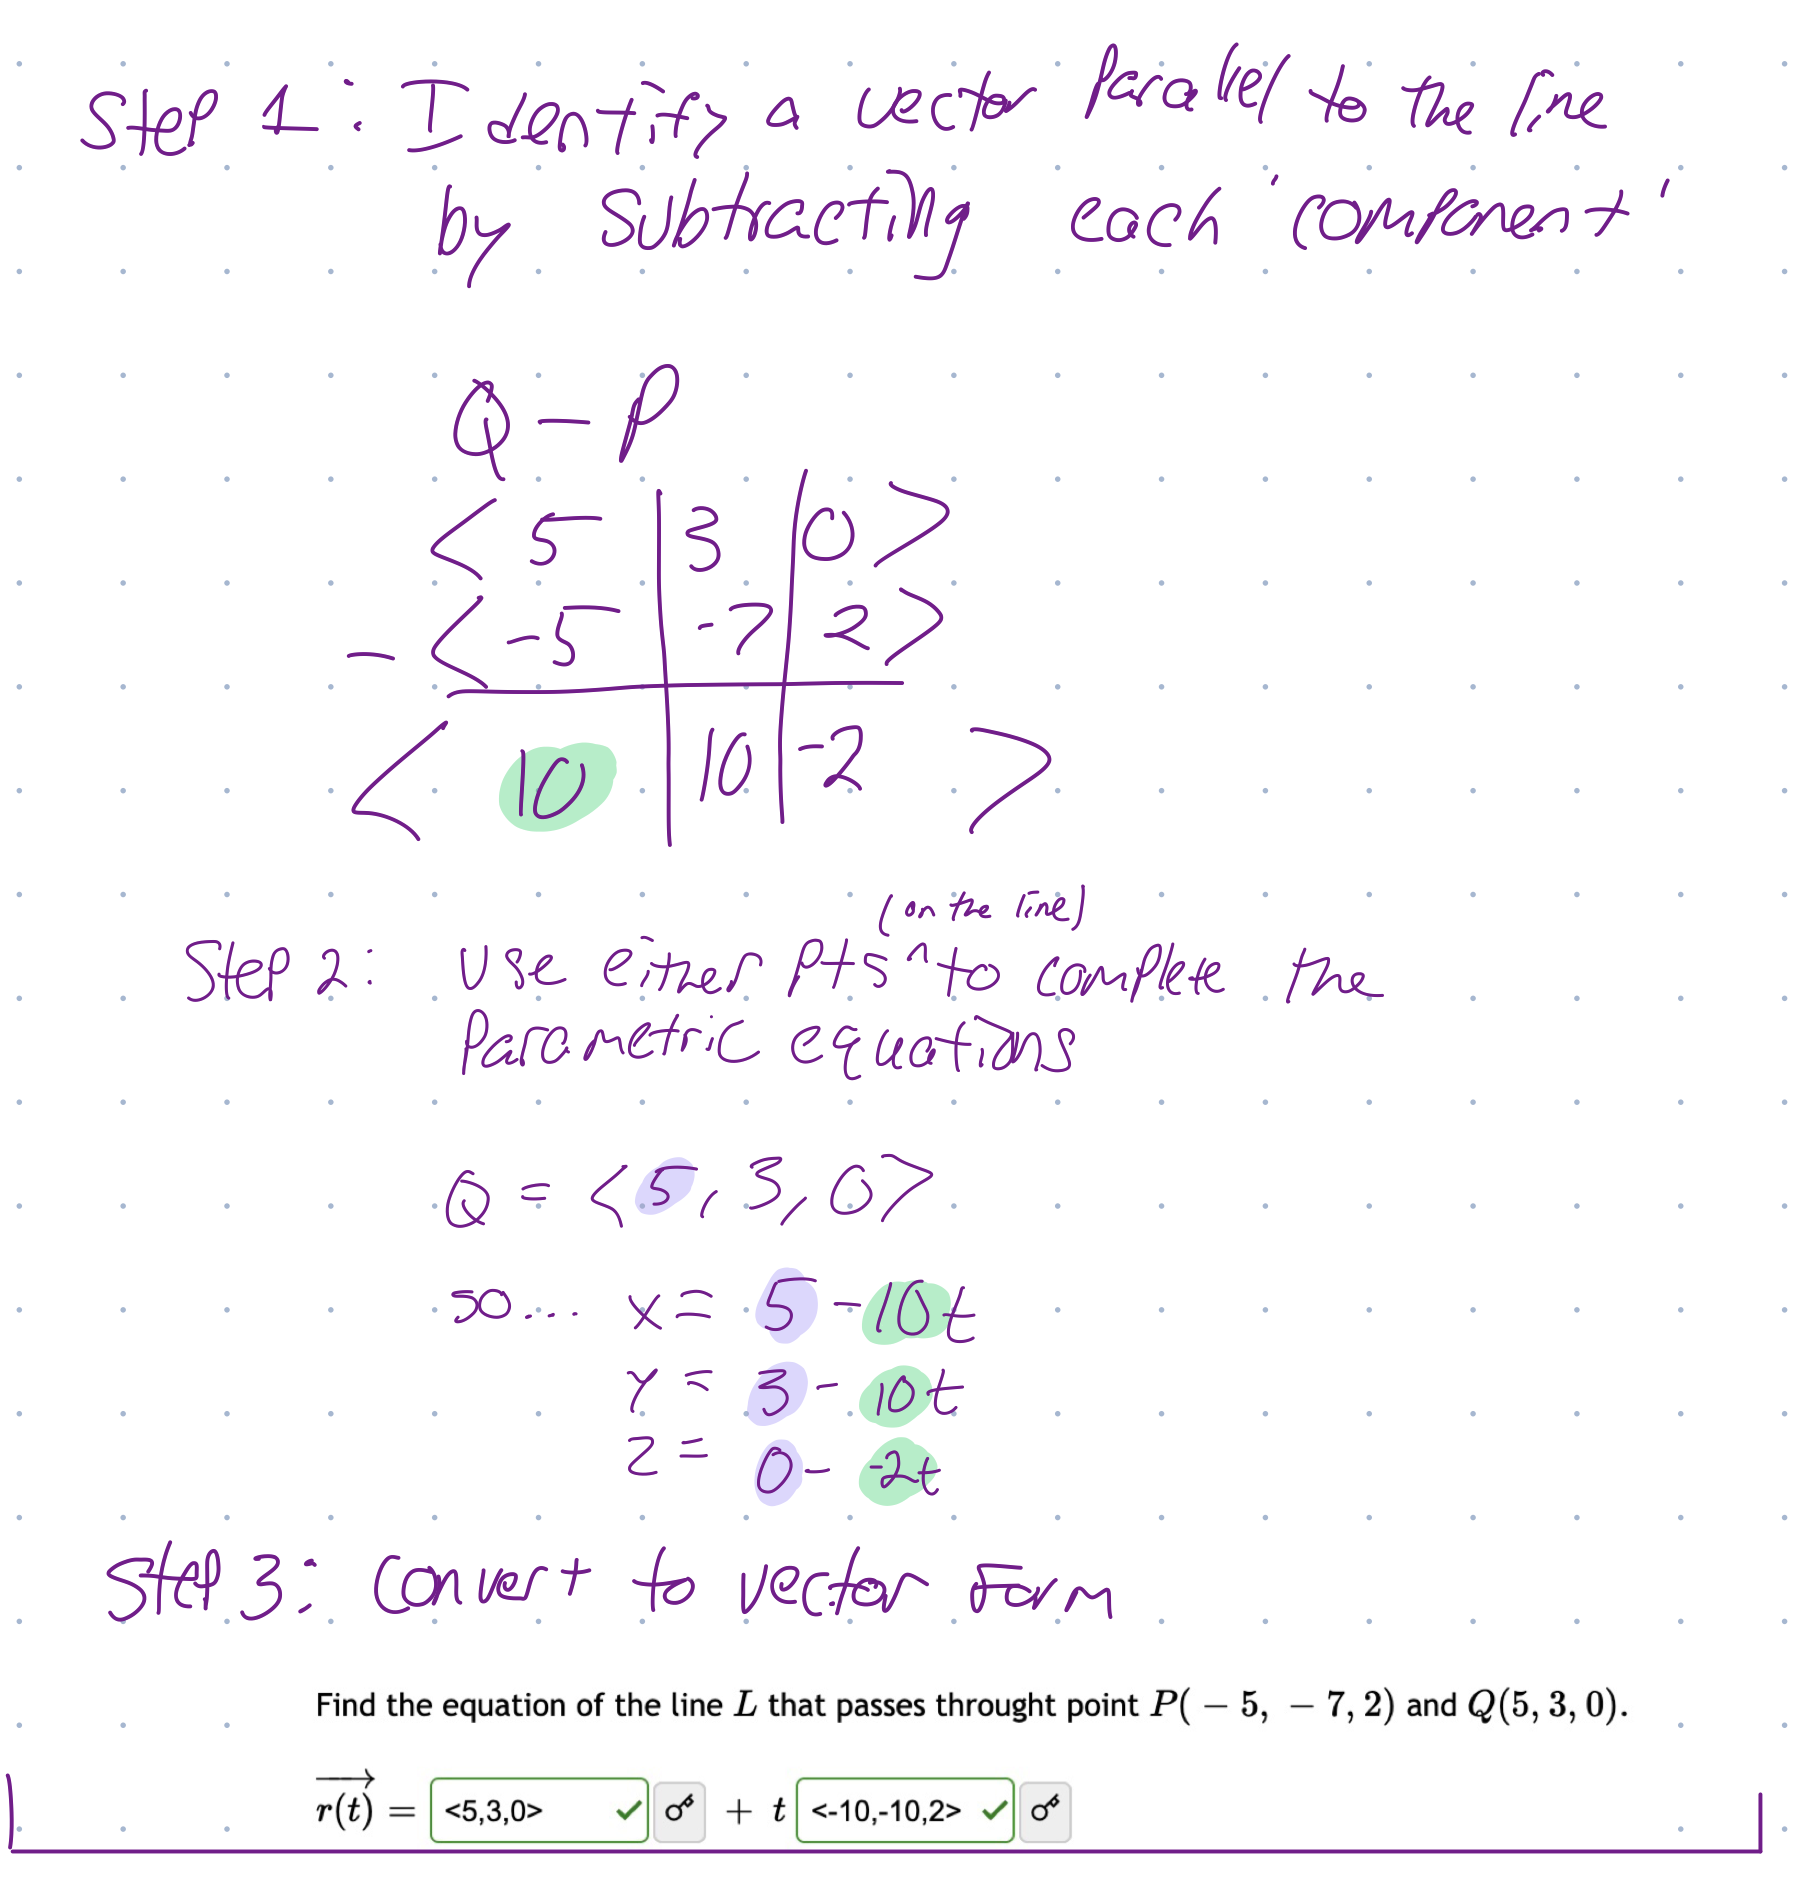 Step 1: Identify a vector Parallel to the line
by subtracting each 'component'
Q - P
< 5 | 3 | 0 >
- < -5 | -7 | 2 >
< 10 | 10 | -2 >
(on the line)
Step 2: Use either Pts ^ to complete the
Parametric equations
Q = < 5, 3, 0 >
so... x = 5 - 10t
y = 3 - 10t
z = 0 - -2t
Step 3: Convert to vector Form
Find the equation of the line L that passes throught point P( - 5, - 7, 2) and Q(5, 3, 0).
r(t) = <5,3,0> + t <-10,-10,2>